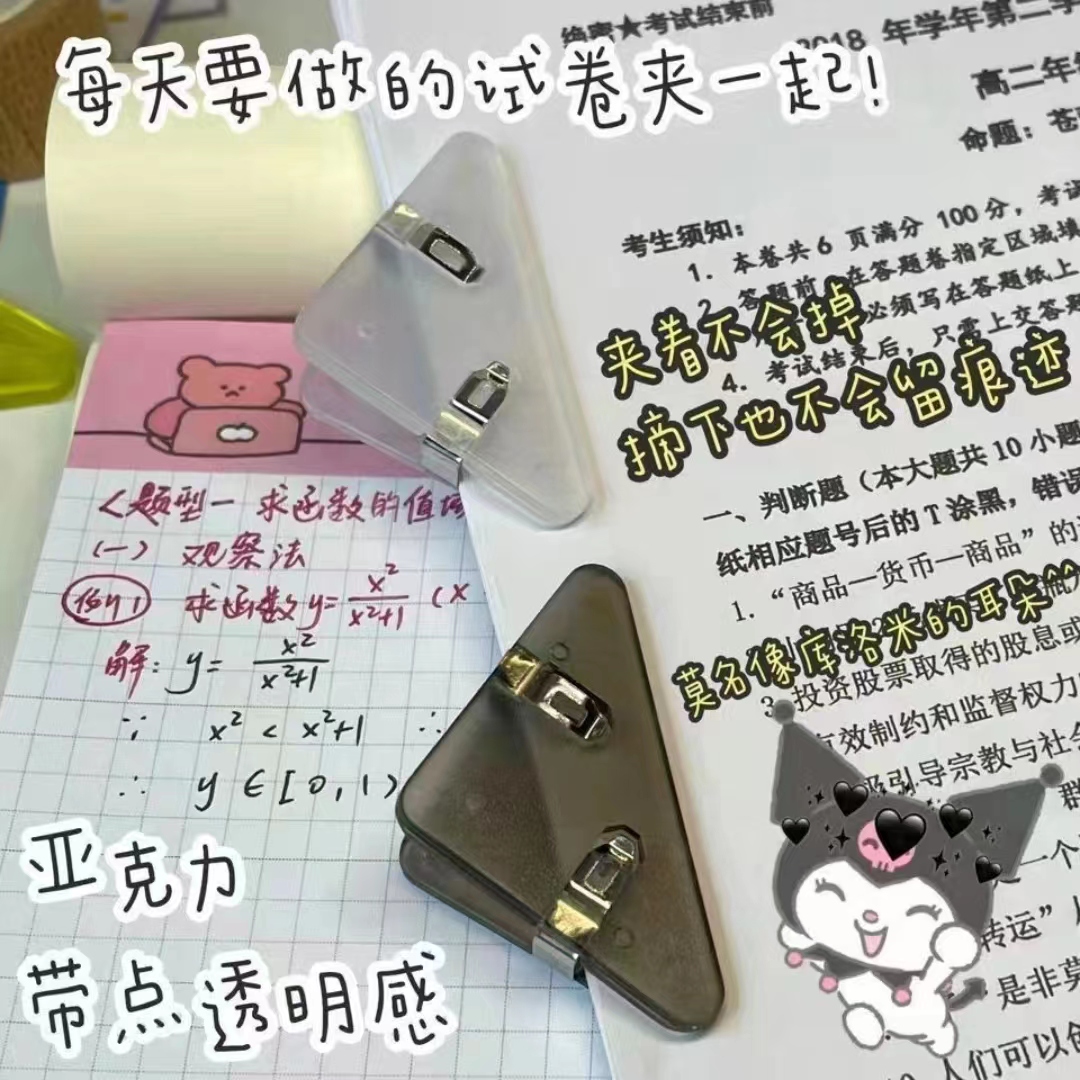 每天要做的试卷夹一起!
绝密★考试结束前
2018 年学年第二学
高二年
命题:
考生须知:
1. 本卷共6 页满分 100分,考试
2. 答题前,在答题卷指定区域填
必须写在答题纸上
4. 考试结束后,只需上交答题
夹着不会掉
摘下也不会留痕迹
一、判断题(本大题共10小题
纸相应题号后的T涂黑,错误
1. “商品—货币—商品”的
莫名像库洛米的耳朵
3. 投资股票取得的股息或
有效制约和监督权力
吸引导宗教与社会
群
一个
转运”
是非莫
人们可以
<题型一 求函数的值域
(一) 观察法
例1 求函数y=x²/x²+1 (x
解: y= x²/x²+1
∵ x² < x²+1 ∴
∴ y∈[0,1)
亚克力
带点透明感